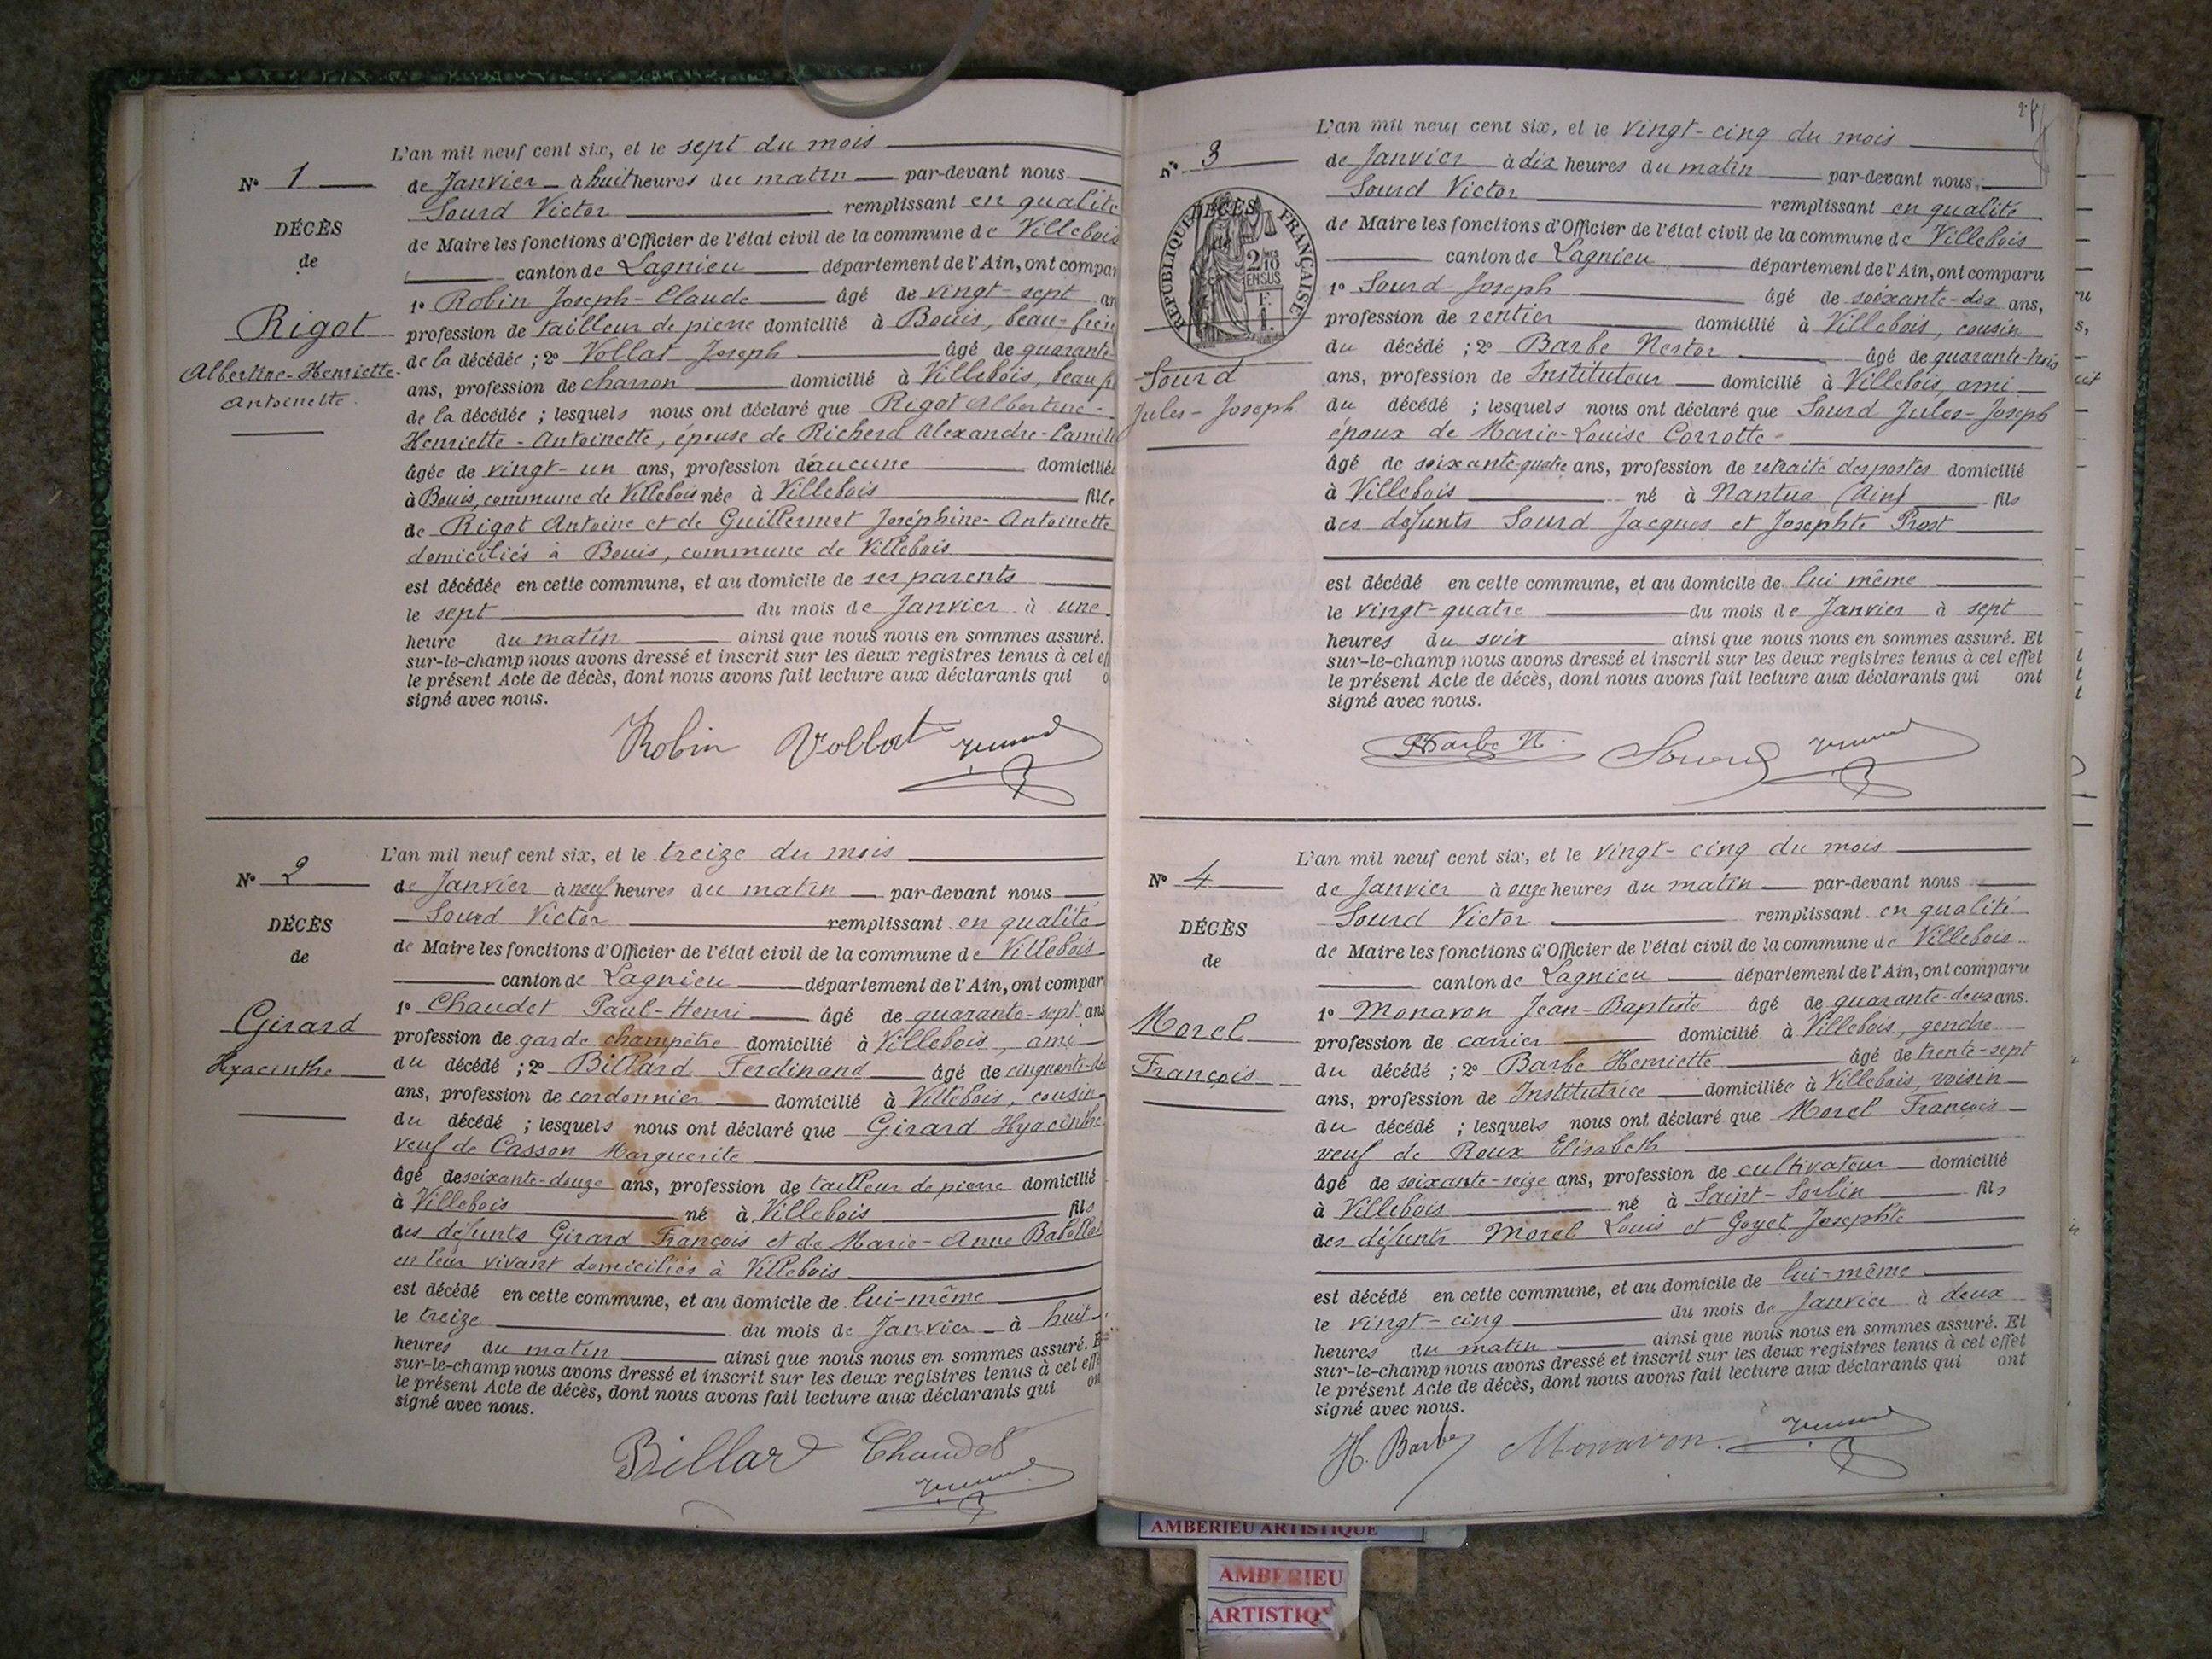 L'an mil neuf cent six, et le sept du mois
N° 1
de Janvier à huit heures du matin par-devant nous
Sourd Victor remplissant en qualité
DÉCÈS
de Maire les fonctions d'Officier de l'état civil de la commune de Villebois
de
canton de Lagnieu département de l'Ain, ont compar
1° Robin Joseph-Claude âgé de vingt-sept an
Rigot
profession de tailleur de pierre domicilié à Bouis, beau-frère
de la décédée ; 2° Vollat Joseph âgé de quarante-
Albertine-Henriette-
ans, profession de charron domicilié à Villebois, beau p
Antoinette.
de la décédée ; lesquels nous ont déclaré que Rigot Albertine-
Henriette-Antoinette, épouse de Richerd Alexandre-Camille
âgée de vingt-un ans, profession d'aucune domiciliée
à Bouis, commune de Villebois née à Villebois fille
de Rigot Antoine et de Guillermet Joséphine-Antoinette
domiciliés à Bouis, commune de Villebois
est décédée en cette commune, et au domicile de ses parents
le sept du mois de Janvier à une
heure du matin ainsi que nous nous en sommes assuré.
sur-le-champ nous avons dressé et inscrit sur les deux registres tenus à cet eff
le présent Acte de décès, dont nous avons fait lecture aux déclarants qui o
signé avec nous.
Robin Vollat
L'an mil neuf cent six, et le treize du mois
N° 2
de Janvier à neuf heures du matin par-devant nous
Sourd Victor remplissant en qualité
DÉCÈS
de Maire les fonctions d'Officier de l'état civil de la commune de Villebois
de
canton de Lagnieu département de l'Ain, ont compar
1° Chaudet Paul-Henri âgé de quarante-sept ans
Girard
profession de garde champêtre domicilié à Villebois, ami
Hyacinthe
du décédé ; 2° Billard Ferdinand âgé de
ans, profession de cordonnier domicilié à Villebois, cousin
du décédé ; lesquels nous ont déclaré que Girard Hyacinthe
veuf de Casson Marguerite
âgé de soixante-douze ans, profession de tailleur de pierre domicilié
à Villebois né à Villebois fils
des défunts Girard François et de Marie-Anne
en leur vivant domiciliés à Villebois
est décédé en cette commune, et au domicile de lui-même
le treize du mois de Janvier à huit
heures du matin ainsi que nous nous en sommes assuré. E
sur-le-champ nous avons dressé et inscrit sur les deux registres tenus à cet effe
le présent Acte de décès, dont nous avons fait lecture aux déclarants qui on
signé avec nous.
Billard Chaudet
L'an mil neuf cent six, et le vingt-cinq du mois
N° 3
de Janvier à dix heures du matin par-devant nous
Sourd Victor remplissant en qualité
RÉPUBLIQUE FRANÇAISE
DÉCÈS
2/10 EN SUS
de Maire les fonctions d'Officier de l'état civil de la commune de Villebois
canton de Lagnieu département de l'Ain, ont comparu
1° Sourd Joseph âgé de soixante-dix ans,
profession de rentier domicilié à Villebois, cousin
du décédé ; 2° Barbe Nestor âgé de quarante-trois
Sourd
ans, profession de Instituteur domicilié à Villebois, ami
Jules-Joseph
du décédé ; lesquels nous ont déclaré que Sourd Jules-Joseph
époux de Marie-Louise Corrotte
âgé de soixante-quatre ans, profession de retraité des postes domicilié
à Villebois né à Nantua (Ain) fils
des défunts Sourd Jacques et Josephte Prost
est décédé en cette commune, et au domicile de lui même
le vingt-quatre du mois de Janvier à sept
heures du soir ainsi que nous nous en sommes assuré. Et
sur-le-champ nous avons dressé et inscrit sur les deux registres tenus à cet effet
le présent Acte de décès, dont nous avons fait lecture aux déclarants qui ont
signé avec nous.
Barbe N. Sourd
L'an mil neuf cent six, et le vingt-cinq du mois
N° 4
de Janvier à onze heures du matin par-devant nous
Sourd Victor remplissant en qualité
DÉCÈS
de Maire les fonctions d'Officier de l'état civil de la commune de Villebois
de
canton de Lagnieu département de l'Ain, ont comparu
1° Monavon Jean-Baptiste âgé de quarante-deux ans.
Morel
profession de carrier domicilié à Villebois, gendre
François
du décédé ; 2° Barbe Henriette âgé de trente-sept
ans, profession de Institutrice domiciliée à Villebois, voisin
du décédé ; lesquels nous ont déclaré que Morel François
veuf de Roux Elisabeth
âgé de soixante-seize ans, profession de cultivateur domicilié
à Villebois né à Saint-Sorlin fils
des défunts Morel Louis et Goyet Josephte
est décédé en cette commune, et au domicile de lui-même
le vingt-cinq du mois de Janvier à deux
heures du matin ainsi que nous nous en sommes assuré. Et
sur-le-champ nous avons dressé et inscrit sur les deux registres tenus à cet effet
le présent Acte de décès, dont nous avons fait lecture aux déclarants qui ont
signé avec nous.
H. Barbe Monavon
AMBERIEU ARTISTIQUE
AMBERIEU
ARTISTIQ